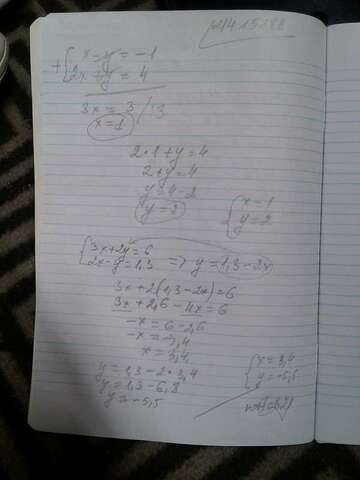 x-y=-1
2x+y=4
3x=3 /:3
x=1
2•1+y=4
2+y=4
y=4-2
y=2
x=1
y=2
3x+2y=6
2x-y=1,3 => y=1,3-2x
3x+2(1,3-2x)=6
3x+2,6-4x=6
-x=6-2,6
-x=3,4
x=3,4
y=1,3-2•3,4
y=1,3-6,8
y=-5,5
x=3,4
y=-5,5